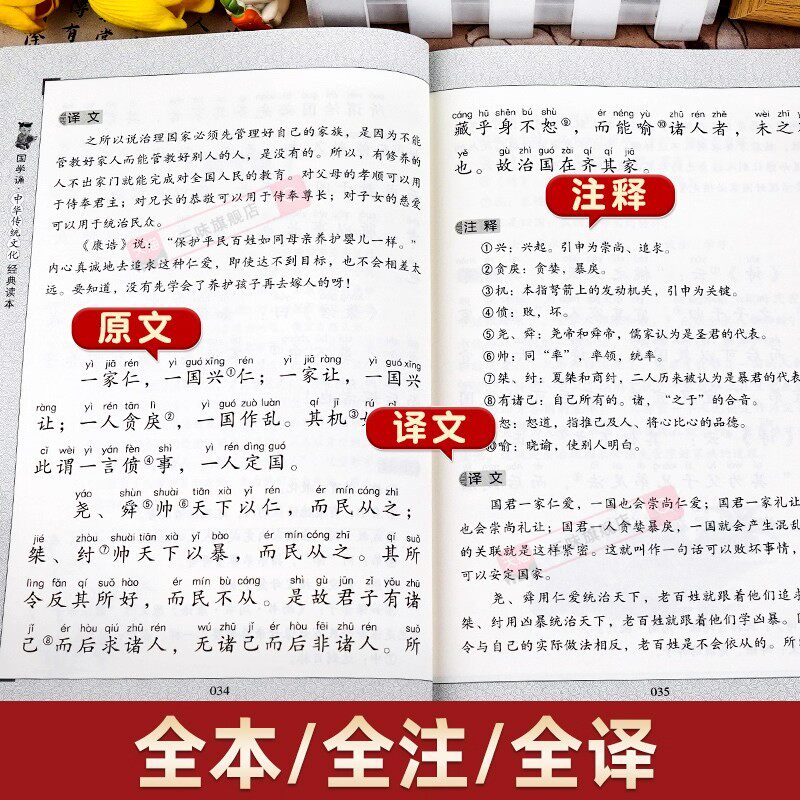 除
有
国学诵·中华传统文化经典读本
译文
之所以说治理国家必须先管理好自己的家族，是因为不能
管教好家人而能管教好别人的人，是没有的。所以，有修养的
人不出家门就能完成对全国人民的教育。对父母的孝顺可以用
于侍奉君主；对兄长的恭敬可以用于侍奉尊长；对子女的慈爱
可以用于统治民众。
《康诰》说：“保护平民百姓如同母亲养护婴儿一样。”
内心真诚地去追求这种仁爱，即使达不到目标，也不会相差太
远。要知道，没有先学会了养护孩子再去嫁人的呀！
原文
yì jiā rén yì guó xīng rén yì jiā ràng yì guó xīng
一家仁，一国兴①仁；一家让，一国兴
ràng yì rén tān lì yì guó zuò luàn qí jī rú cǐ
让；一人贪戾②，一国作乱。其机③
cǐ wèi yì yán fèn shì yì rén dìng guó
此谓一言偾④事，一人定国。
yáo shùn shuài tiān xià yǐ rén ér mín cóng zhī
尧、舜⑤帅⑥天下以仁，而民从之；
jié zhòu shuài tiān xià yǐ bào ér mín cóng zhī qí suǒ
桀、纣⑦帅天下以暴，而民从之。其所
lìng fǎn qí suǒ hào ér mín bù cóng shì gù jūn zǐ yǒu zhū
令反其所好，而民不从。是故君子有诸
jǐ ér hòu qiú zhū rén wú zhū jǐ ér hòu fēi zhū rén suǒ
己⑧而后求诸人，无诸己而后非诸人。所
034
cáng hū shēn bú shù ér néng yù zhū rén zhě wèi zhī
藏乎身不恕⑨，而能喻⑩诸人者，未之
yě gù zhì guó zài qí qí jiā
也。故治国在齐其家。
注释
注释
①兴：兴起。引申为崇尚、追求。
②贪戾：贪婪，暴戾。
③机：本指弩箭上的发动机关，引申为关键。
④偾：败，坏。
⑤尧、舜：尧帝和舜帝，儒家认为是圣君的代表。
⑥帅：同“率”，率领，统率。
⑦桀、纣：夏桀和商纣，二人历来被认为是暴君的代表
⑧有诸己：自己所有的。诸，“之于”的合音。
恕：恕道，指推己及人、将心比心的品德。
⑩喻：晓谕，使别人明白。
译文
译文
国君一家仁爱，一国也会崇尚仁爱；国君一家礼让
也会崇尚礼让；国君一人贪婪暴戾，一国就会产生混乱
的关联就是这样紧密。这就叫作一句话可以败坏事情，
可以安定国家。
尧、舜用仁爱统治天下，老百姓就跟着他们追求
桀、纣用凶暴统治天下，老百姓就跟着他们学凶暴。
令与自己的实际做法相反，老百姓是不会依从的。所
035
全本/全注/全译